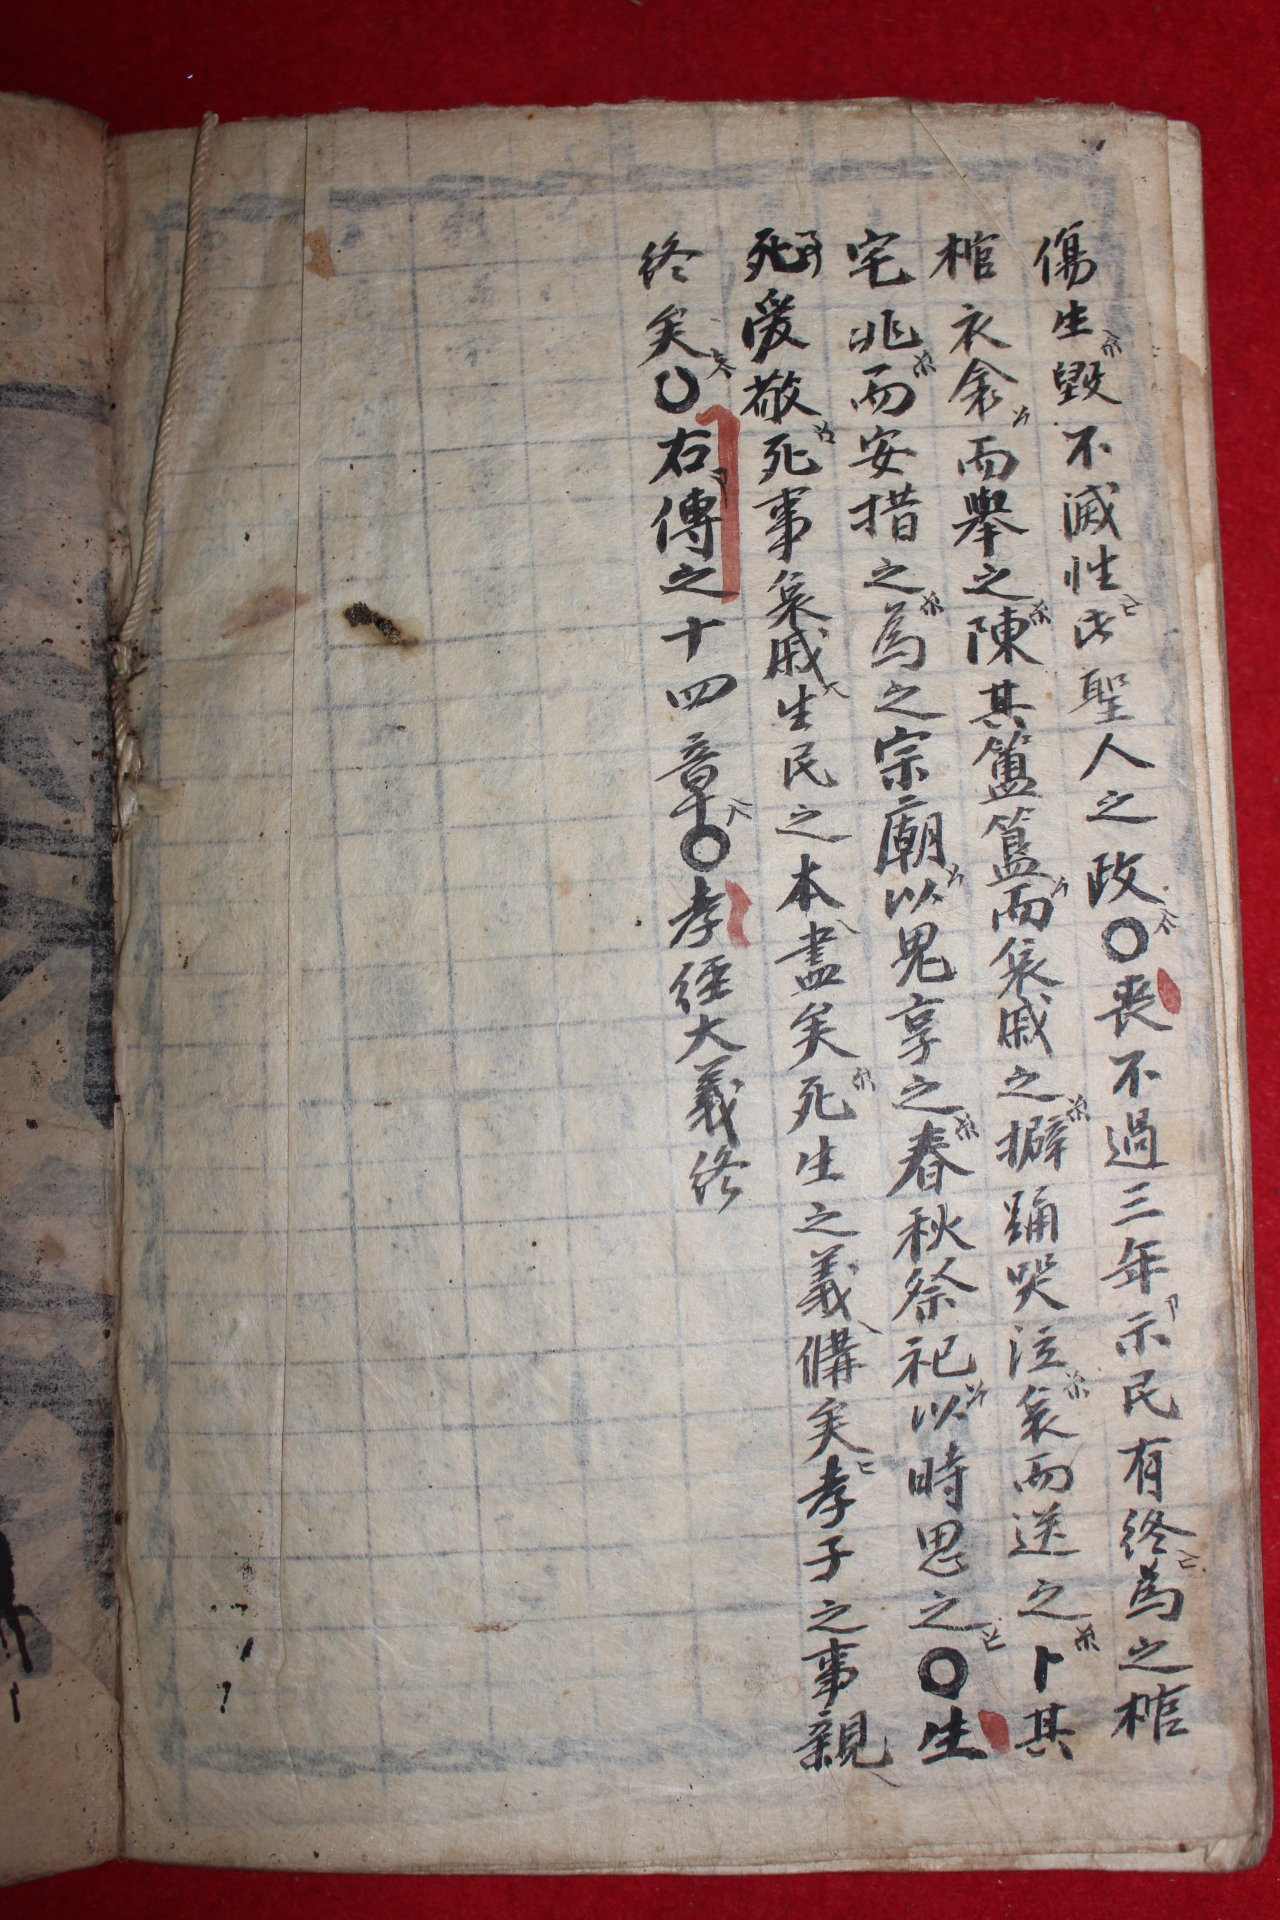 傷生毀不滅性此聖人之政〇喪不過三年示民有終為之棺
棺衣衾而舉之陳其簠簋而哀戚之擗踊哭泣哀而送之卜其
宅兆而安措之為之宗廟以鬼享之春秋祭祀以時思之〇生
愛敬死事哀戚生民之本盡矣死生之義備矣孝子之事親
終矣〇右傳之十四章〇孝經大義終